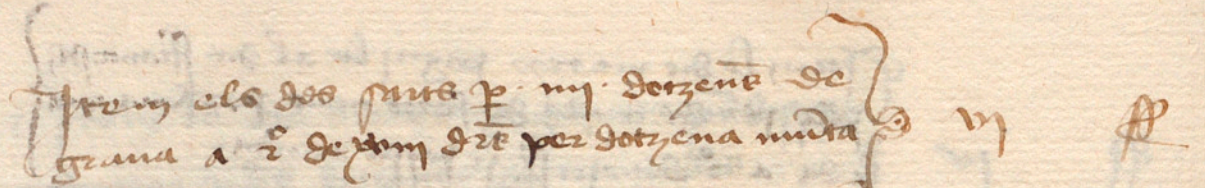 Item els dos sarts per · iiii · dotzens de
grava a rº de xviii drs per dotzena munta vi ss